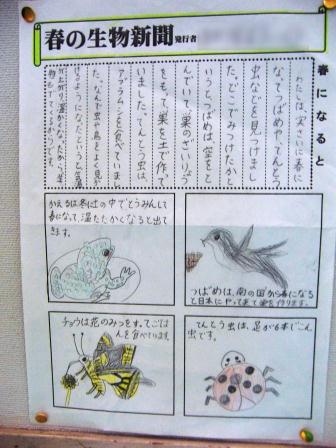 春の生物新聞 発行者
春になると
わたしは、実さいに春に
なってつばめや、てんとう
虫などを見つけまし
た。どこでみつけたかと
いうと、つばめは、空をと
んでいて、巣のざいりょう
をもって、巣を土で作って
いました。てんとう虫は、
アブラムシを食べていまし
た。なんで虫や鳥をよく見か
けるようになったというと、気温
が上がり、温かくなったから、虫や
鳥もでてくるからです。
かえるは冬は土の中でとうみんして
春になって、温たたかくなると出て
きます。
つばめは、南の国から春になる
と日本にやって来て巣を作ります。
チョウは花のみつをすってごは
んを食べています。
てんとう虫は、足が6本でこん
虫です。